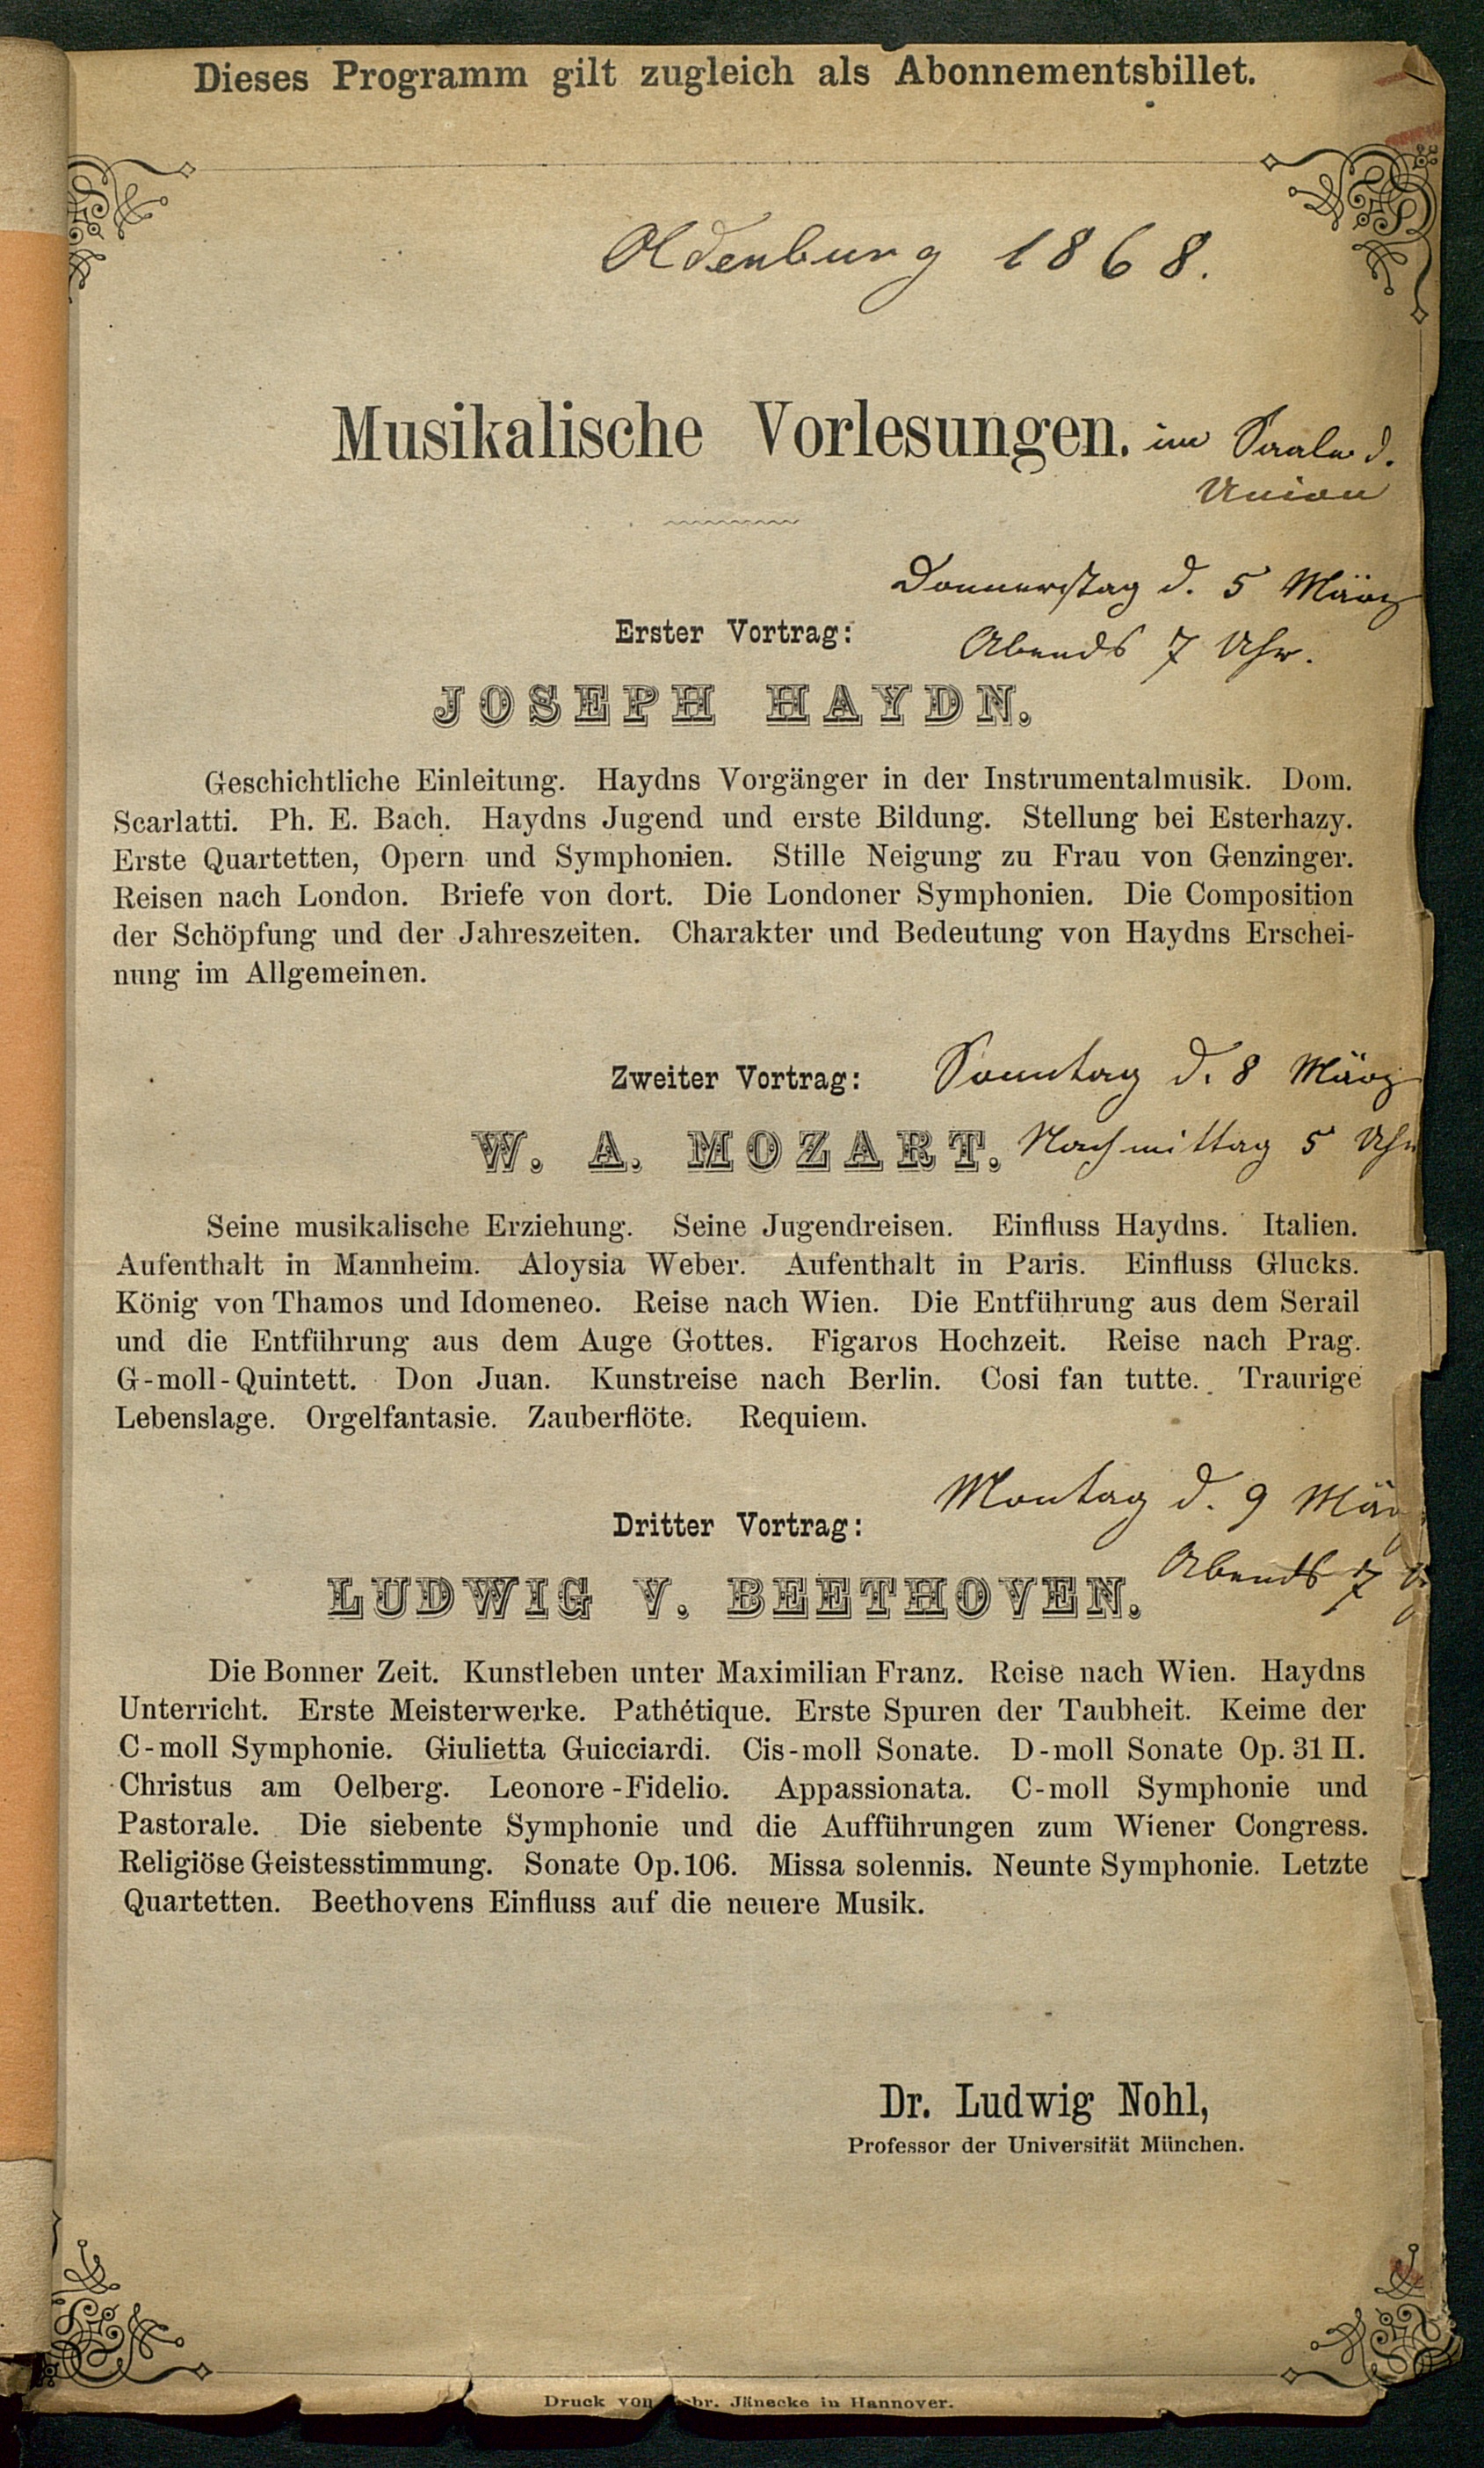 Dieses Programm gilt zugleich als Abonnementsbillet.
Oldenburg 1868.
Musikalische Vorlesungen. im Saale d.
Union
Donnerstag d. 5 März
Erster Vortrag: Abends 7 Uhr.
JOSEPH HAYDN.
Geschichtliche Einleitung. Haydns Vorgänger in der Instrumentalmusik. Dom.
Scarlatti. Ph. E. Bach. Haydns Jugend und erste Bildung. Stellung bei Esterhazy.
Erste Quartetten, Opern und Symphonien. Stille Neigung zu Frau von Genzinger.
Reisen nach London. Briefe von dort. Die Londoner Symphonien. Die Composition
der Schöpfung und der Jahreszeiten. Charakter und Bedeutung von Haydns Erschei-
nung im Allgemeinen.
Zweiter Vortrag: Sonntag d. 8 März
W. A. MOZART. Nachmittag 5 Uhr
Seine musikalische Erziehung. Seine Jugendreisen. Einfluss Haydns. Italien.
Aufenthalt in Mannheim. Aloysia Weber. Aufenthalt in Paris. Einfluss Glucks.
König von Thamos und Idomeneo. Reise nach Wien. Die Entführung aus dem Serail
und die Entführung aus dem Auge Gottes. Figaros Hochzeit. Reise nach Prag.
G-moll-Quintett. Don Juan. Kunstreise nach Berlin. Cosi fan tutte. Traurige
Lebenslage. Orgelfantasie. Zauberflöte. Requiem.
Montag d. 9 März
Dritter Vortrag:
Abends 7
LUDWIG V. BEETHOVEN.
Die Bonner Zeit. Kunstleben unter Maximilian Franz. Reise nach Wien. Haydns
Unterricht. Erste Meisterwerke. Pathétique. Erste Spuren der Taubheit. Keime der
C-moll Symphonie. Giulietta Guicciardi. Cis-moll Sonate. D-moll Sonate Op. 31 II.
Christus am Oelberg. Leonore-Fidelio. Appassionata. C-moll Symphonie und
Pastorale. Die siebente Symphonie und die Aufführungen zum Wiener Congress.
Religiöse Geistesstimmung. Sonate Op. 106. Missa solennis. Neunte Symphonie. Letzte
Quartetten. Beethovens Einfluss auf die neuere Musik.
Dr. Ludwig Nohl,
Professor der Universität München.
Druck von Gebr. Jänecke in Hannover.